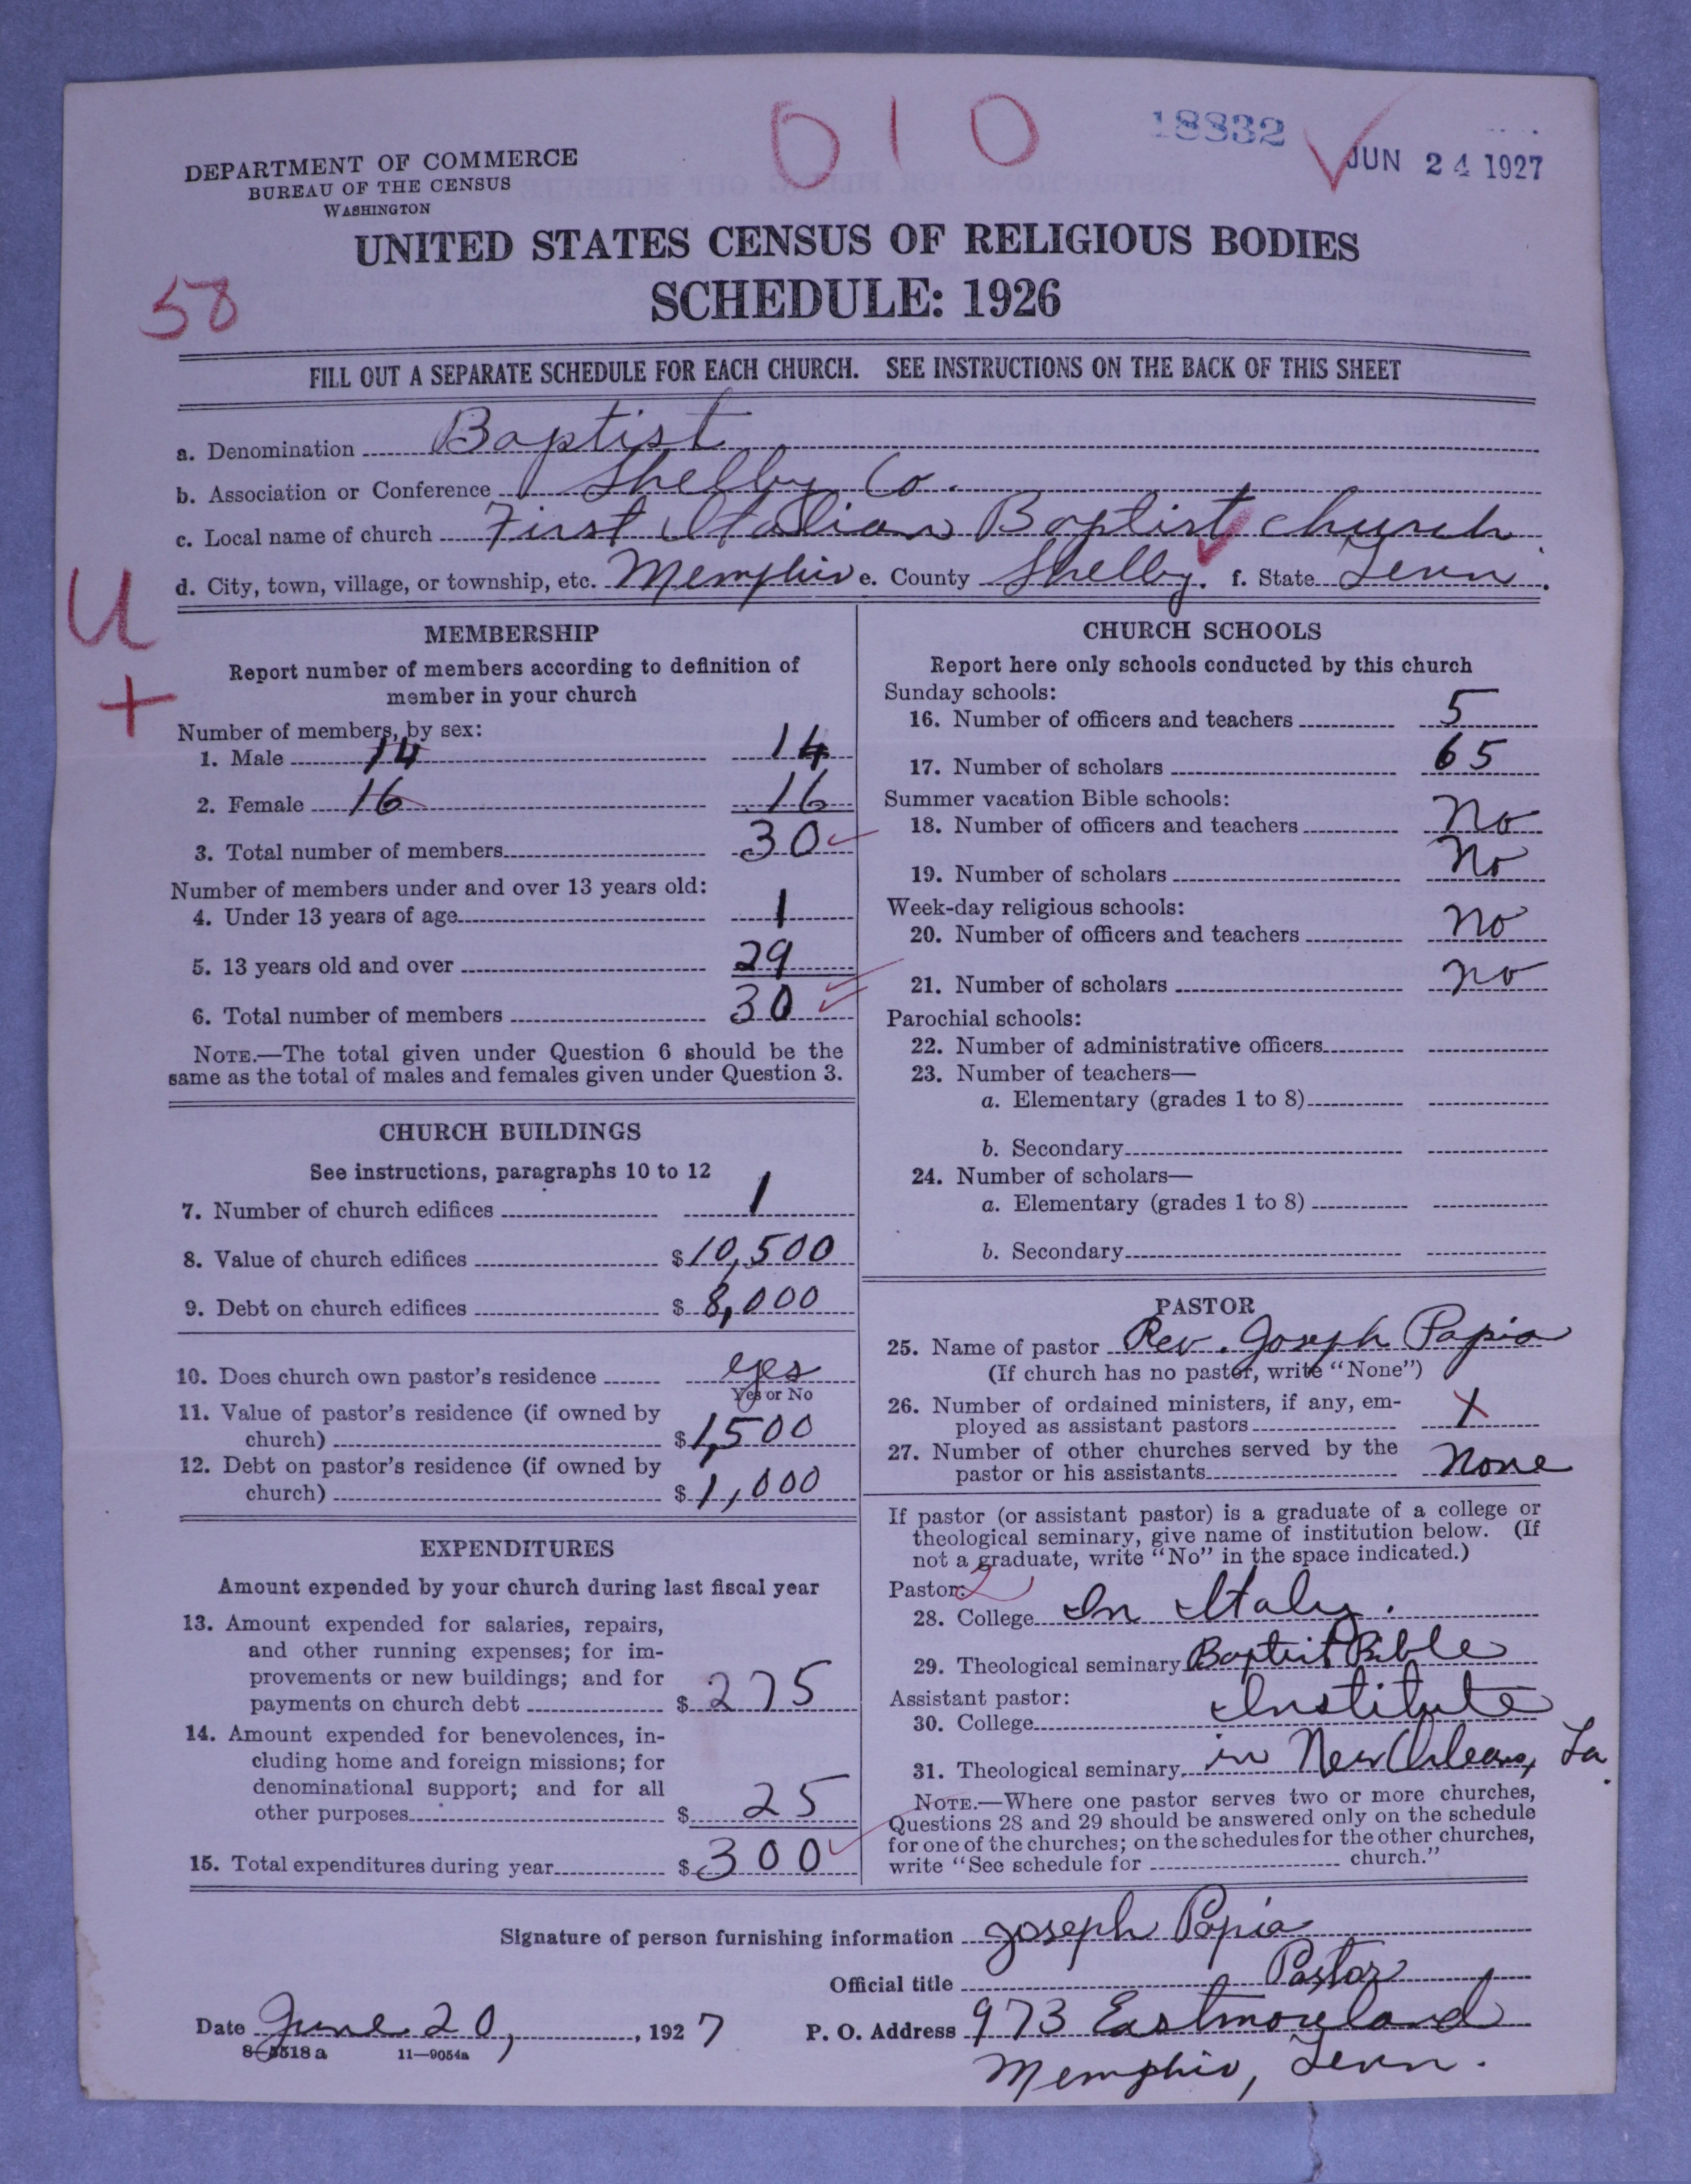 010
18832
JUN 24 1927
DEPARTMENT OF COMMERCE
BUREAU OF THE CENSUS
WASHINGTON
UNITED STATES CENSUS OF RELIGIOUS BODIES
SCHEDULE: 1926
58
FILL OUT A SEPARATE SCHEDULE FOR EACH CHURCH. SEE INSTRUCTIONS ON THE BACK OF THIS SHEET
a. Denomination Baptist
b. Association or Conference Shelby Co.
c. Local name of church First Italian Baptist church
d. City, town, village, or township, etc. Memphis e. County Shelby. f. State Tenn.
U
+
MEMBERSHIP
Report number of members according to definition of
member in your church
Number of members, by sex:
1. Male 14 14
2. Female 16 16
3. Total number of members 30
Number of members under and over 13 years old:
4. Under 13 years of age 1
5. 13 years old and over 29
6. Total number of members 30
NOTE.—The total given under Question 6 should be the
same as the total of males and females given under Question 3.
CHURCH BUILDINGS
See instructions, paragraphs 10 to 12
7. Number of church edifices 1
8. Value of church edifices $10,500
9. Debt on church edifices $ 8,000
10. Does church own pastor's residence yes
Yes or No
11. Value of pastor's residence (if owned by
church) $1,500
12. Debt on pastor's residence (if owned by
church) $1,000
EXPENDITURES
Amount expended by your church during last fiscal year
13. Amount expended for salaries, repairs,
and other running expenses; for im-
provements or new buildings; and for
payments on church debt $275
14. Amount expended for benevolences, in-
cluding home and foreign missions; for
denominational support; and for all
other purposes $ 25
15. Total expenditures during year $300
CHURCH SCHOOLS
Report here only schools conducted by this church
Sunday schools:
16. Number of officers and teachers 5
17. Number of scholars 65
Summer vacation Bible schools:
18. Number of officers and teachers No
19. Number of scholars No
Week-day religious schools:
20. Number of officers and teachers No
21. Number of scholars no
Parochial schools:
22. Number of administrative officers
23. Number of teachers—
a. Elementary (grades 1 to 8)
b. Secondary
24. Number of scholars—
a. Elementary (grades 1 to 8)
b. Secondary
PASTOR
25. Name of pastor Rev. Joseph Papia
(If church has no pastor, write "None")
26. Number of ordained ministers, if any, em-
ployed as assistant pastors
27. Number of other churches served by the
pastor or his assistants None
If pastor (or assistant pastor) is a graduate of a college or
theological seminary, give name of institution below. (If
not a graduate, write "No" in the space indicated.)
Pastor: 2
28. College In Italy.
29. Theological seminary Baptist Bible
Assistant pastor: Institute
30. College
31. Theological seminary in New Orleans, La.
NOTE.—Where one pastor serves two or more churches,
Questions 28 and 29 should be answered only on the schedule
for one of the churches; on the schedules for the other churches,
write "See schedule for church."
Signature of person furnishing information Joseph Papia
Official title Pastor
Date June 20, 1927 P. O. Address 973 Eastmoreland
8-5518a 11—9054a
Memphis, Tenn.